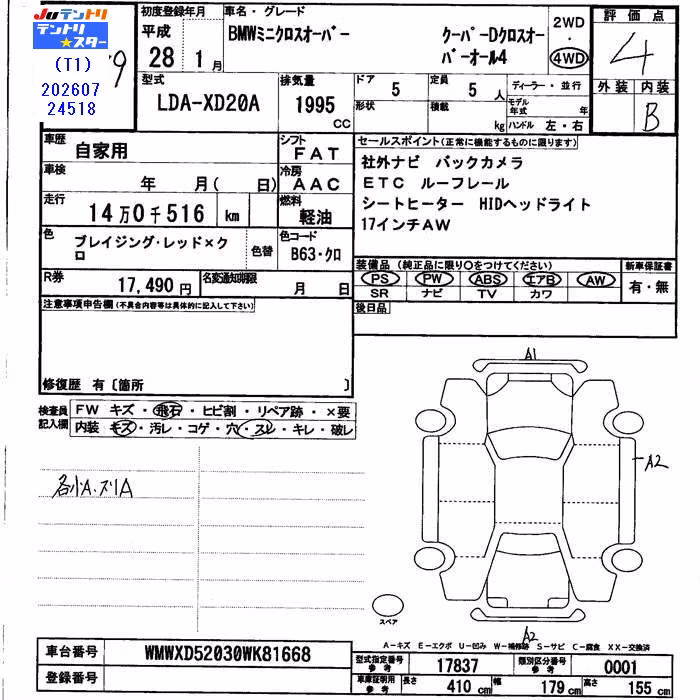 Juテントリ
テントリ★スター
(T1)
202607
24518
9
初度登録年月
平成
28 1月
車名・グレード
BMWミニクロスオーバー
クーパーDクロスオーバーオール4
2WD
・
4WD
評価点
4
外装 内装
B
型式
LDA-XD20A
排気量
1995
CC
ドア
5
定員
5人
ディーラー・並行
形状
積載
kg
モデル年式 年
ハンドル 左・右
車歴
自家用
シフト
FAT
車検
年 月(日)
冷房
AAC
走行
14万0千516 km
燃料
軽油
色
ブレイジング・レッド×クロ
色替
色コード
B63・クロ
R券
17,490円
名変通知期限
月 日
セールスポイント(正常に機能するものに限ります)
社外ナビ バックカメラ
ETC ルーフレール
シートヒーター HIDヘッドライト
17インチAW
装備品(純正品に限り○をつけてください)
PS PW ABS エアB AW
SR ナビ TV カワ
新車保証書
有・無
後日品
注意事項申告欄(不具合内容等は具体的に記入して下さい)
修復歴 有〔箇所 〕
検査員記入欄
FW キズ・飛石・ヒビ割・リペア跡・×要
内装 キズ・汚レ・コゲ・穴・スレ・キレ・破レ
各小A.ズリA
A1
A2
A2
スペア
A-キズ E-エクボ U-凹み W-補修跡 S-サビ C-腐食 XX-交換済
車台番号
WMWXD52030WK81668
登録番号
型式指定番号参考
17837
類別区分番号参考
0001
車庫証明用参考
長さ 410 cm
幅 179 cm
高さ 155 cm